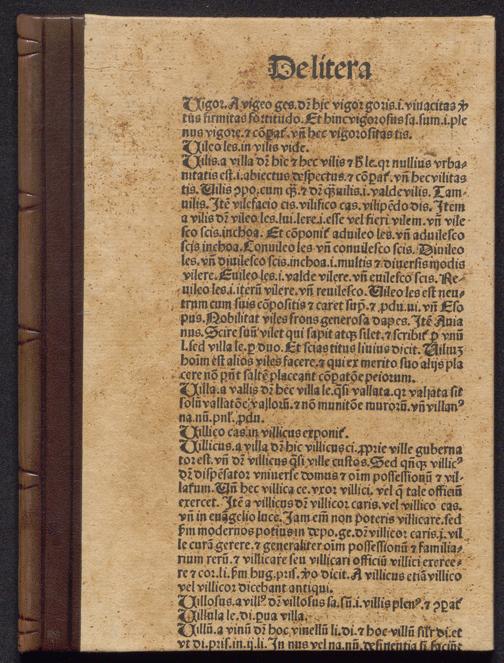 De litera
Uigor. A vigeo ges. dr̄ hic vigor goris. i. viuacitas
tus firmitas fortitudo. Et hinc vigorosus sa. sum. i. ple
nus vigore. ⁊ cōpaƭ. vn̄ hec vigorositas tis.
Uileo les. in vilis vide.
Uilis. a villa dr̄ hic ⁊ hec vilis ⁊ le. qr nullius vrba-
nitatis est. i. abiectus despectus. ⁊ cōpaƭ. vn̄ hec vilitas
tis. Uilis cum . ⁊ dr̄ i. valde vilis. Tam-
uilis. Itē vilefacio cis. vilifico cas. vilipēdo dis. Item
a vilis dr̄ vileo les. lui. lere. i. esse vel fieri vilem. vn̄ vile
sco scis. inchoa. Et cōponiƭ aduileo les. vn̄ aduilesco
scis inchoa. Conuileo les vn̄ conuilesco scis. Diuileo
les. vn̄ diuilesco scis. inchoa. i. multis ⁊ diuersis modis
vilere. Euileo les. i. valde vilere. vn̄ euilesco scis. Re-
uileo les. i. iterū vilere. vn̄ reuilesco. Uileo les est neu-
trum cum suis cōpositis ⁊ caret sup̄. ⁊ ꝓdu. ui. vn̄ Eso
pus. Nobilitat viles frons generosa dapes. Itē Auia
nus. Scire vilet qui sapit atqƺ silet. ⁊ scribiƭ ꝑ vnū
l. sed villa le. ꝑ duo. Et scias titus liuius dicit.
hoīm est alios viles facere. ⁊ qui ex merito suo alijs pla
cere nō pn̄t saltē placeant cōpatōe peiorum.
Uilla. a vallis dr̄ hec villa le. q̄si vallata. qr vallata sit
solū vallatōe vallorū. ⁊ nō munitōe murorū. vn̄ villanꝰ
na. nū. pnƭ. ꝓdu.
Uillico cas. in villicus exponiƭ.
Uillicus. a villa dr̄ hic villicus ci. ꝓprie ville guberna
tor est. vn̄ dr̄ villicus q̄si ville custos. Sed qn̄qƺ villicꝰ
dr̄ dispēsator vniuerse domus ⁊ oīm possessionū ⁊ vil-
larum. Un̄ hec villica ce. vxor villici. vel q̄ tale officiū
exercet. Itē a villicus dr̄ villicor caris. vel villico cas.
vn̄ in euāgelio luce. Jam em̄ non poteris villicare. sed
modernos potius in depo. ge. dr̄ villicor caris. i. vil
le curā gerere. ⁊ generaliter oīm possessionū ⁊ familia-
rium rerū. ⁊ villicare seu villicari officiū villici exerce-
re ⁊ cor. li. hug. pris. dicit. A villicus etiā villico
vel villicor dicebant antiqui.
Uillosus. a villꝰ dr̄ villosus sa. sū. i. villis plenꝰ. ⁊
Uillula le. di. villa.
Uillū. a vinū dr̄ hoc vinellū li. di. ⁊ hoc villū di. et
vt di. pris. in . li. In nus vel na nū. definentia si faciūt